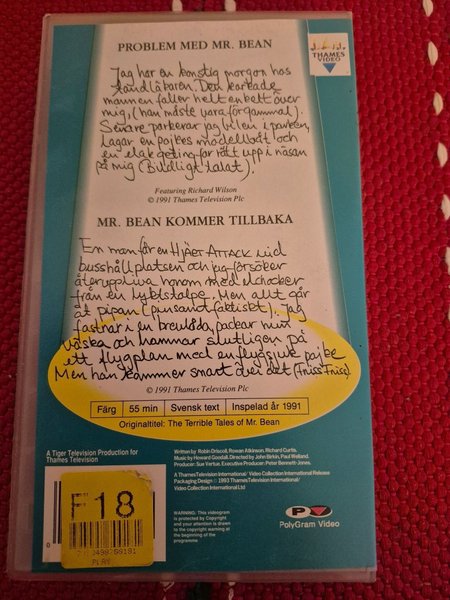 PROBLEM MED MR. BEAN
THAMES
VIDEO
Jag har en konstig morgon hos
tandläkaren. Den korkade
mannen faller helt enkelt över
mig, (han måste vara förgammal).
Senare parkerar jag bilen i parken,
lagar en pojkes modellbåt och
en elak geting far rätt upp i näsan
på mig (Bildligt talat).
Featuring Richard Wilson
© 1991 Thames Television Plc
MR. BEAN KOMMER TILLBAKA
En man får en HJÄRT ATTACK vid
busshållplatsen och jag försöker
återuppliva honom med elchocker
från en lyktstolpe. Men allt går
åt pipan (pensant faktiskt). Jag
fastnar i en brevlåda, packar min
väska och hamnar slutligen på
ett flygplan med en flygsjuk pojke
Men han kommer snart över det (Fniss Fniss)
© 1991 Thames Television Plc
Färg 55 min Svensk text Inspelad år 1991
Originaltitel: The Terrible Tales of Mr. Bean
A Tiger Television Production for
Thames Television
Written by Robin Driscoll, Rowan Atkinson, Richard Curtis.
Music by Howard Goodall. Directed by John Birkin, Paul Weiland.
Producer: Sue Vertue. Executive Producer: Peter Bennett-Jones.
A Thames Television International/ Video Collection International Release
Packaging Design © 1993 Thames Television International/
Video Collection International Ltd
WARNING: This videogram
is protected by Copyright
and your attention is drawn
to the copyright warning at
the beginning of the
programme.
PolyGram Video
F18